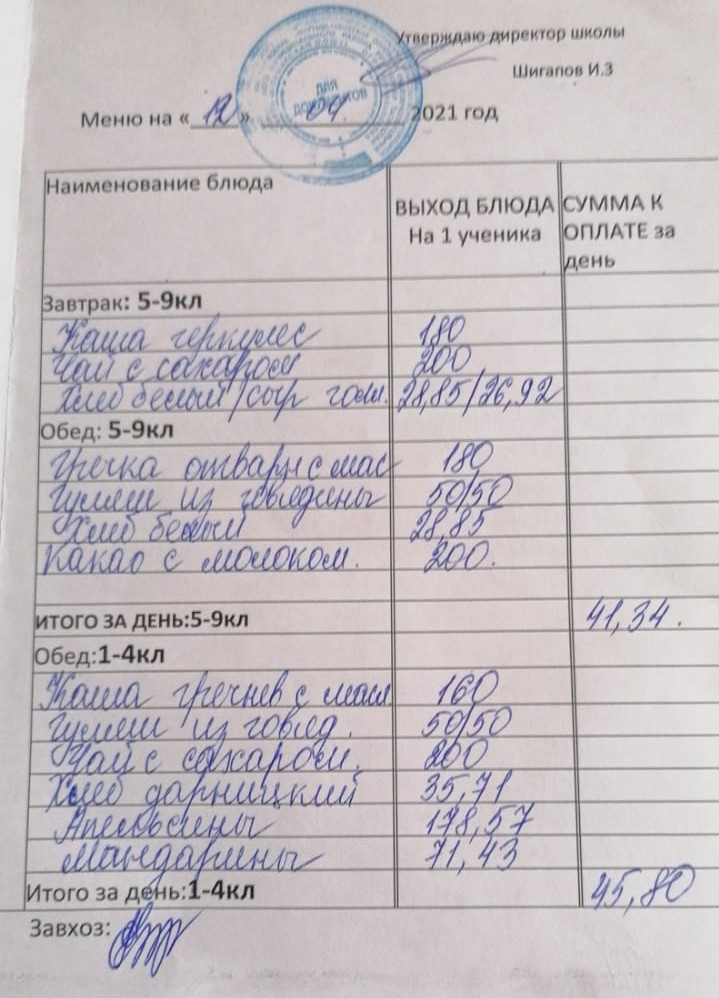 Утверждаю директор школы
Шигапов И.З
ДЛЯ
ДОКУМЕНТОВ
Меню на «12» 04 2021 год
Наименование блюда
ВЫХОД БЛЮДА
На 1 ученика
СУММА К
ОПЛАТЕ за
день
Завтрак: 5-9кл
Каша геркулес 180
Чай с сахаром 200
Хлеб белый/сыр голл. 28,85/26,92
Обед: 5-9кл
Гречка отварн с мас 180
Гуляш из говядины 50/50
Хлеб белый 28,85
Какао с молоком. 200.
ИТОГО ЗА ДЕНЬ:5-9кл 41,34.
Обед:1-4кл
Каша гречнев с масл 160
Гуляш из говяд. 50/50
Чай с сахаром. 200
Хлеб дарницкий 35,71
Апельсины 178,57
Мандарины 71,43
Итого за день:1-4кл 45,80
Завхоз: